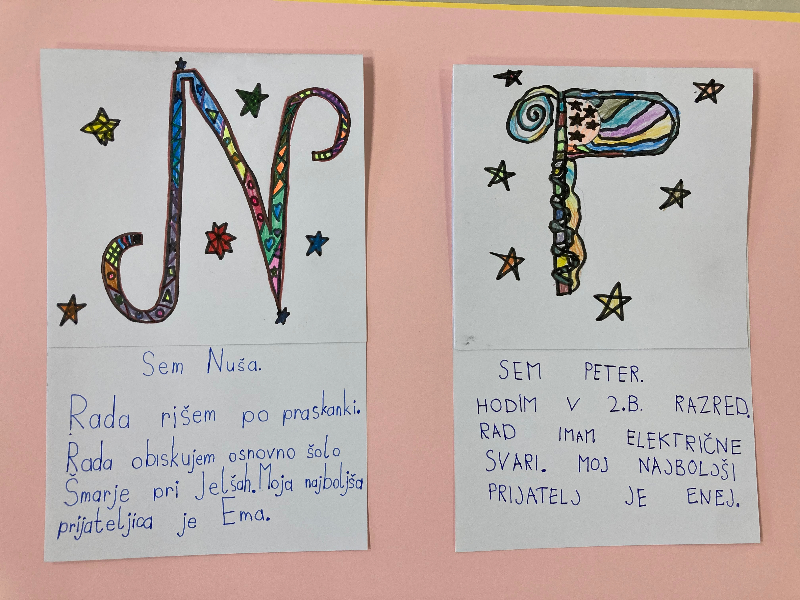 N
Sem Nuša.
Rada rišem po praskanki.
Rada obiskujem osnovno šolo
Šmarje pri Jelšah. Moja najboljša
prijateljica je Ema.
P
SEM PETER.
HODIM V 2.B. RAZRED.
RAD IMAM ELEKTRIČNE
SVARI. MOJ NAJBOLJŠI
PRIJATELJ JE ENEJ.